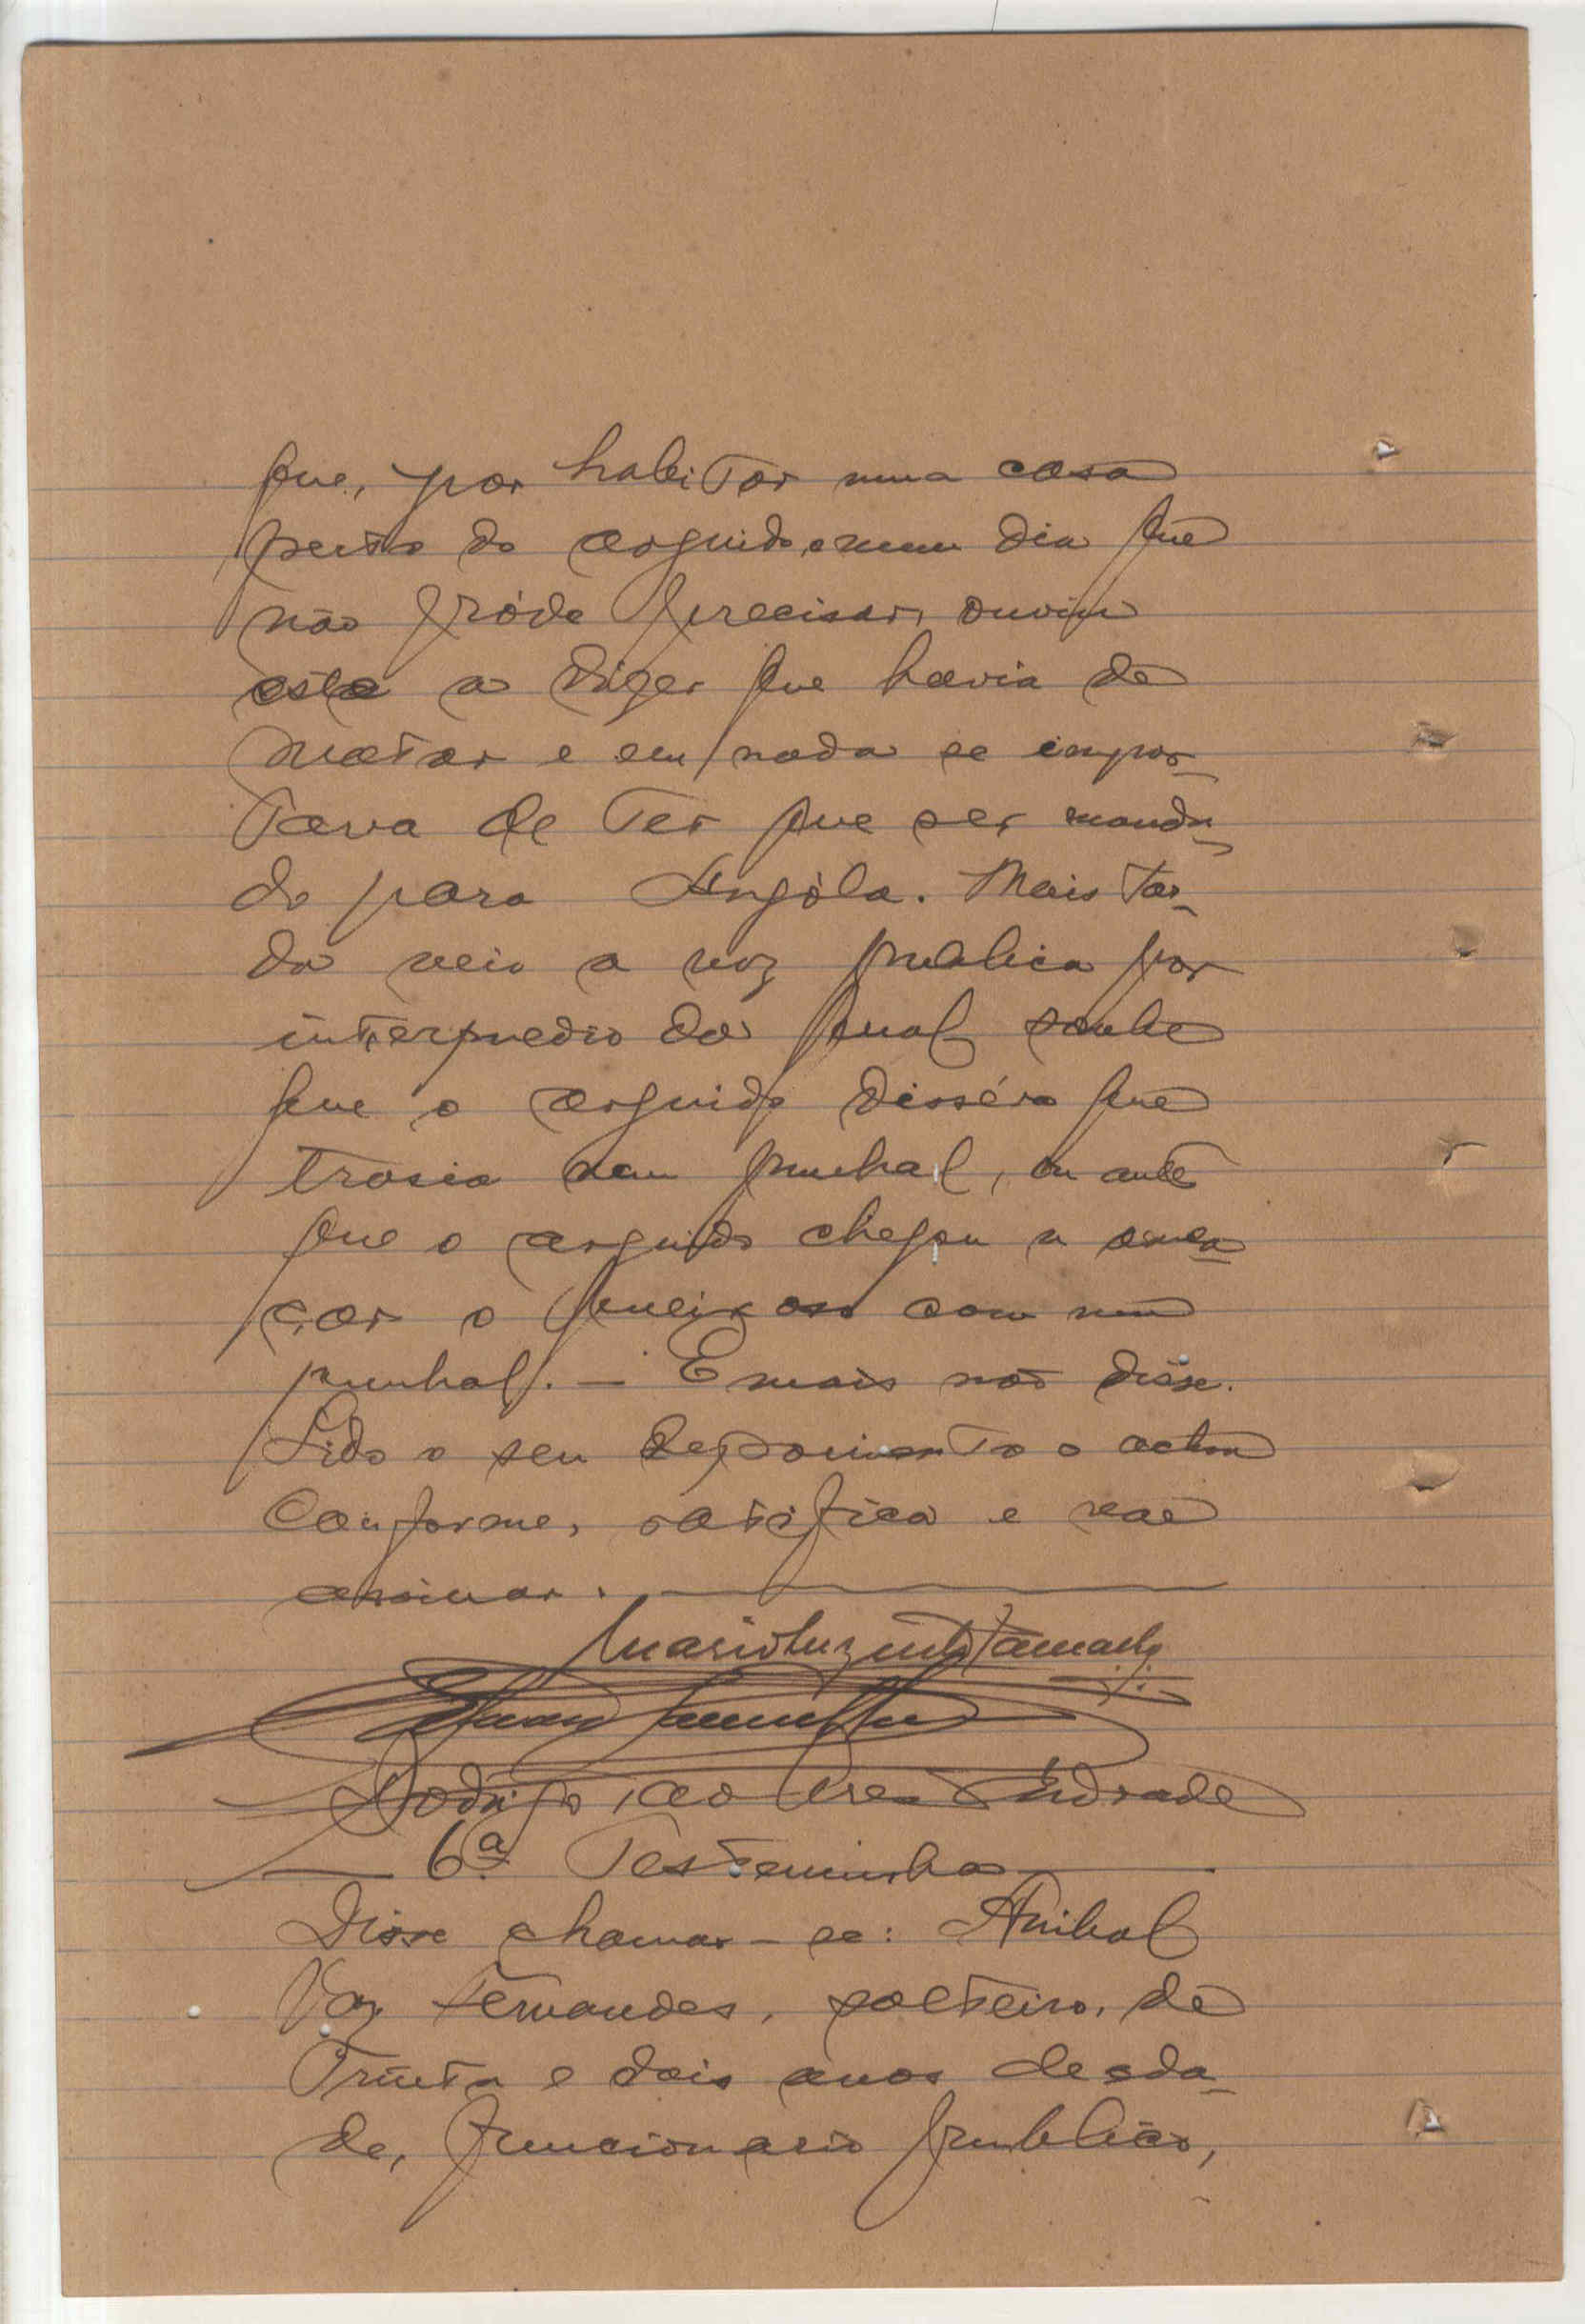 que, por habitar numa casa
perto do arguido, e num dia que
não póde precisar, ouviu
este a dizer que havia de
matar e em nada se impor-
tava de ter que ser manda-
do para Angóla. Mais tar-
da veio a voz publica por
intermedio da qual soube
que o arguido disséra que
trasia um punhal, ou ante
que o arguido chegou a amea-
çar o queixoso com um
punhal. — E mais não disse.
Lido o seu depoimento o achou
conforme, ratifica e vae
assinar.
Rodrigo Andrade
6ª Testemunha
Disse chamar-se: Anibal
Vaz Fernandes, solteiro, de
trinta e dois anos de eda-
de, funcionario publico,